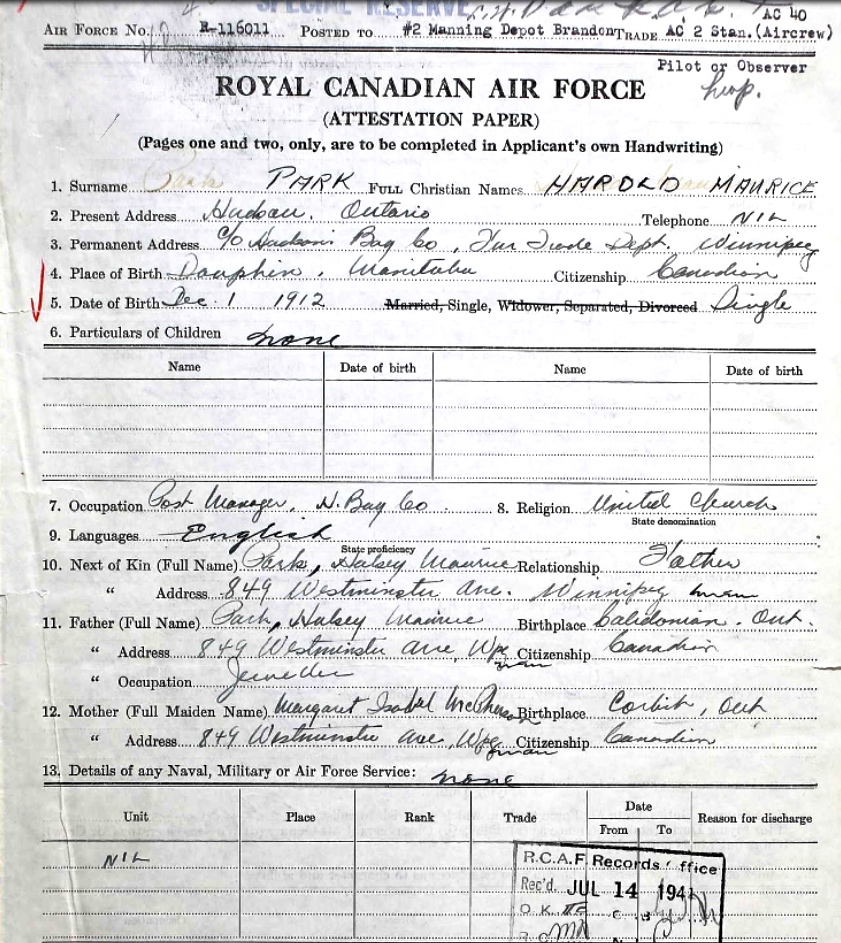 SPECIAL RESERVE
AC 40
AIR FORCE NO. R-116011 POSTED TO #2 Manning Depot Brandon TRADE AC 2 Stan. (Aircrew)
Pilot or Observer
ROYAL CANADIAN AIR FORCE
(ATTESTATION PAPER)
(Pages one and two, only, are to be completed in Applicant's own Handwriting)
1. Surname PARK FULL Christian Names HAROLD MAURICE
2. Present Address Hudson, Ontario Telephone NIL
3. Permanent Address c/o Hudson's Bay Co, Fur Trade Dept. Winnipeg
4. Place of Birth Dauphin, Manitoba Citizenship Canadian
5. Date of Birth Dec. 1 1912 Married, Single, Widower, Separated, Divorced Single
6. Particulars of Children none
Name Date of birth Name Date of birth
7. Occupation Post Manager, H. Bay Co 8. Religion United Church
State denomination
9. Languages English
State proficiency
10. Next of Kin (Full Name) Park, Halsey Maurice Relationship Father
" Address 849 Westminster Ave. Winnipeg man
11. Father (Full Name) Park, Halsey Maurice Birthplace Calidonian. Ont.
" Address 849 Westminster Ave, Wpg man Citizenship Canadian
" Occupation Jeweller
12. Mother (Full Maiden Name) Margaret Isobel Birthplace Corbit, Ont
" Address 849 Westminster Ave, Wpg man Citizenship Canadian
13. Details of any Naval, Military or Air Force Service: none
Unit Place Rank Trade Date From To Reason for discharge
NIL
R.C.A.F. Records Office
Rec'd. JUL 14 1941
O.K.